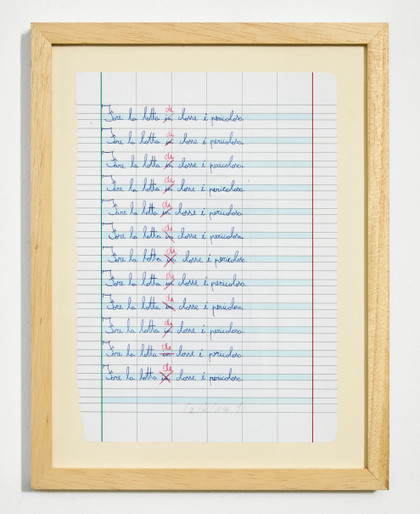 de
Fare la lotta in classe è pericoloso
de
Fare la lotta in classe è pericoloso
de
Fare la lotta in classe è pericoloso
de
Fare la lotta in classe è pericoloso
de
Fare la lotta in classe è pericoloso
de
Fare la lotta in classe è pericoloso
de
Fare la lotta in classe è pericoloso
de
Fare la lotta in classe è pericoloso
de
Fare la lotta in classe è pericoloso
de
Fare la lotta in classe è pericoloso
de
Fare la lotta in classe è pericoloso
de
Fare la lotta in classe è pericoloso